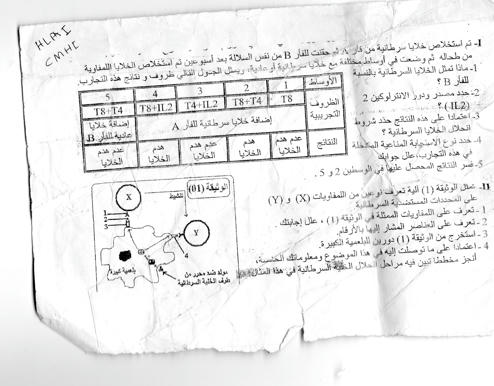 HLA I
CMH I
I- تم استخلاص خلايا سرطانية من فأر A ثم حقنت للفأر B من نفس السلالة بعد أسبوعين تم استخلاص الخلايا اللمفاوية
من طحاله ثم وضعت في أوساط مختلفة مع خلايا سرطانية أو عادية، ويمثل الجدول التالي ظروف و نتائج هذه التجارب.
1- ماذا تمثل الخلايا السرطانية بالنسبة
للفأر B ؟
2 - حدد مصدر ودور الانترلوكين 2
(IL2) ؟
3- اعتمادا على هذه النتائج حدد شروط
انحلال الخلايا السرطانية ؟
4 - حدد نوع الاستجابة المناعية المتدخلة
في هذه التجارب، علل جوابك
5- فسر النتائج المحصل عليها في الوسطين 2 و 5 .
الأوساط 1 2 3 4 5
الظروف التجريبية
T8 T8+T4 T4+IL2 T8+IL2 T8+T4
إضافة خلايا سرطانية للفأر A
إضافة خلايا عادية للفأر B
النتائج
عدم هدم الخلايا
هدم الخلايا
عدم هدم الخلايا
هدم الخلايا
عدم هدم الخلايا
II- تمثل الوثيقة (1) آلية تعرف نوعين من اللمفاويات (X) و (Y)
على المحددات المستضدية السرطانية
1 - تعرف على اللمفاويات الممثلة في الوثيقة (1) ، علل إجابتك.
2 - تعرف على العناصر المشار إليها بالأرقام.
3 - استخرج من الوثيقة (1) دورين للبلعمية الكبيرة.
4 - اعتمادا على ما توصلت إليه في هذا الموضوع ومعلوماتك
أنجز مخططا تبين فيه مراحل انحلال الخلية السرطانية في هذا المثال
الوثيقة (01)
X
تنشيط
1
2
3
Y
4
بلعمية كبيرة
مولد ضد محرر من
طرف الخلية السرطانية